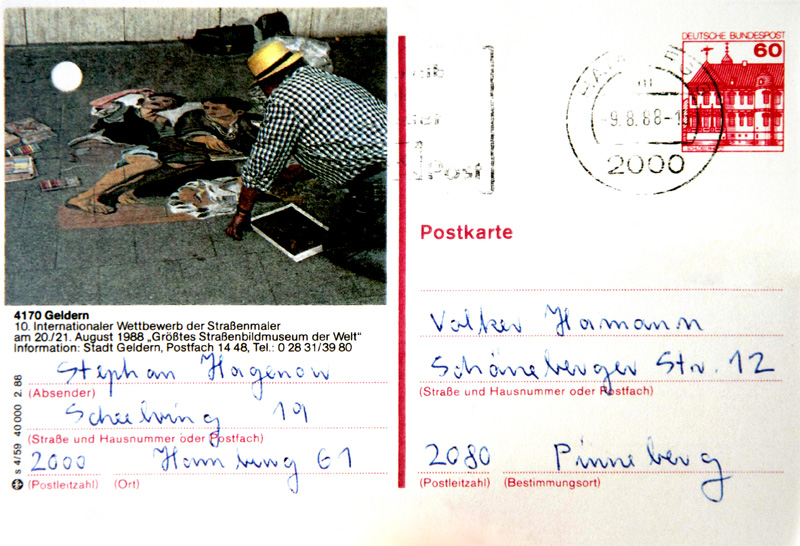 DEUTSCHE BUNDESPOST
60
-9.8.88-1
2000
Post
Postkarte
4170 Geldern
10. Internationaler Wettbewerb der Straßenmaler
am 20./21. August 1988 „Größtes Straßenbildmuseum der Welt“
Information: Stadt Geldern, Postfach 14 48, Tel.: 0 28 31/39 80
Stephan Hagenow
(Absender)
19
(Straße und Hausnummer oder Postfach)
2000 Hamburg 61
(Postleitzahl) (Ort)
s 4/59 40 000 2. 88
Volker Hamann
Schöneberger Str. 12
(Straße und Hausnummer oder Postfach)
2080 Pinneberg
(Postleitzahl) (Bestimmungsort)